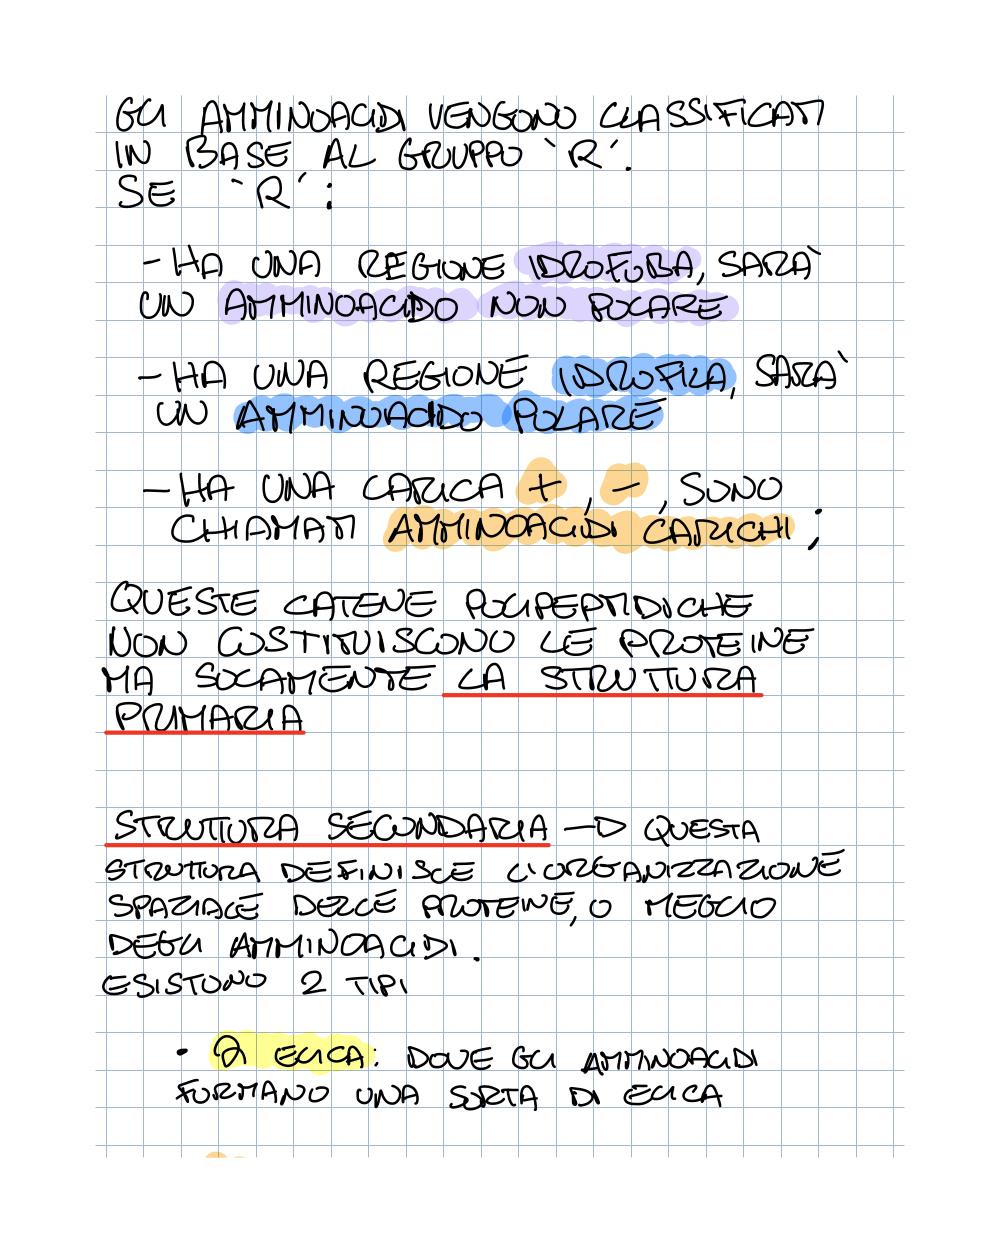 GLI AMMINOACIDI VENGONO CLASSIFICATI
IN BASE AL GRUPPO `R´.
SE `R´:
- HA UNA REGIONE IDROFOBA, SARÀ
UN AMMINOACIDO NON POLARE
- HA UNA REGIONE IDROFILA, SARÀ
UN AMMINOACIDO POLARE
- HA UNA CARICA +, -, SONO
CHIAMATI AMMINOACIDI CARICHI;
QUESTE CATENE POLIPEPTIDICHE
NON COSTITUISCONO LE PROTEINE
MA SOLAMENTE LA STRUTTURA
PRIMARIA
STRUTTURA SECONDARIA —> QUESTA
STRUTTURA DEFINISCE L'ORGANIZZAZIONE
SPAZIALE DELLE PROTEINE, O MEGLIO
DEGLI AMMINOACIDI.
ESISTONO 2 TIPI
• α ELICA: DOVE GLI AMMINOACIDI
FORMANO UNA SORTA DI ELICA